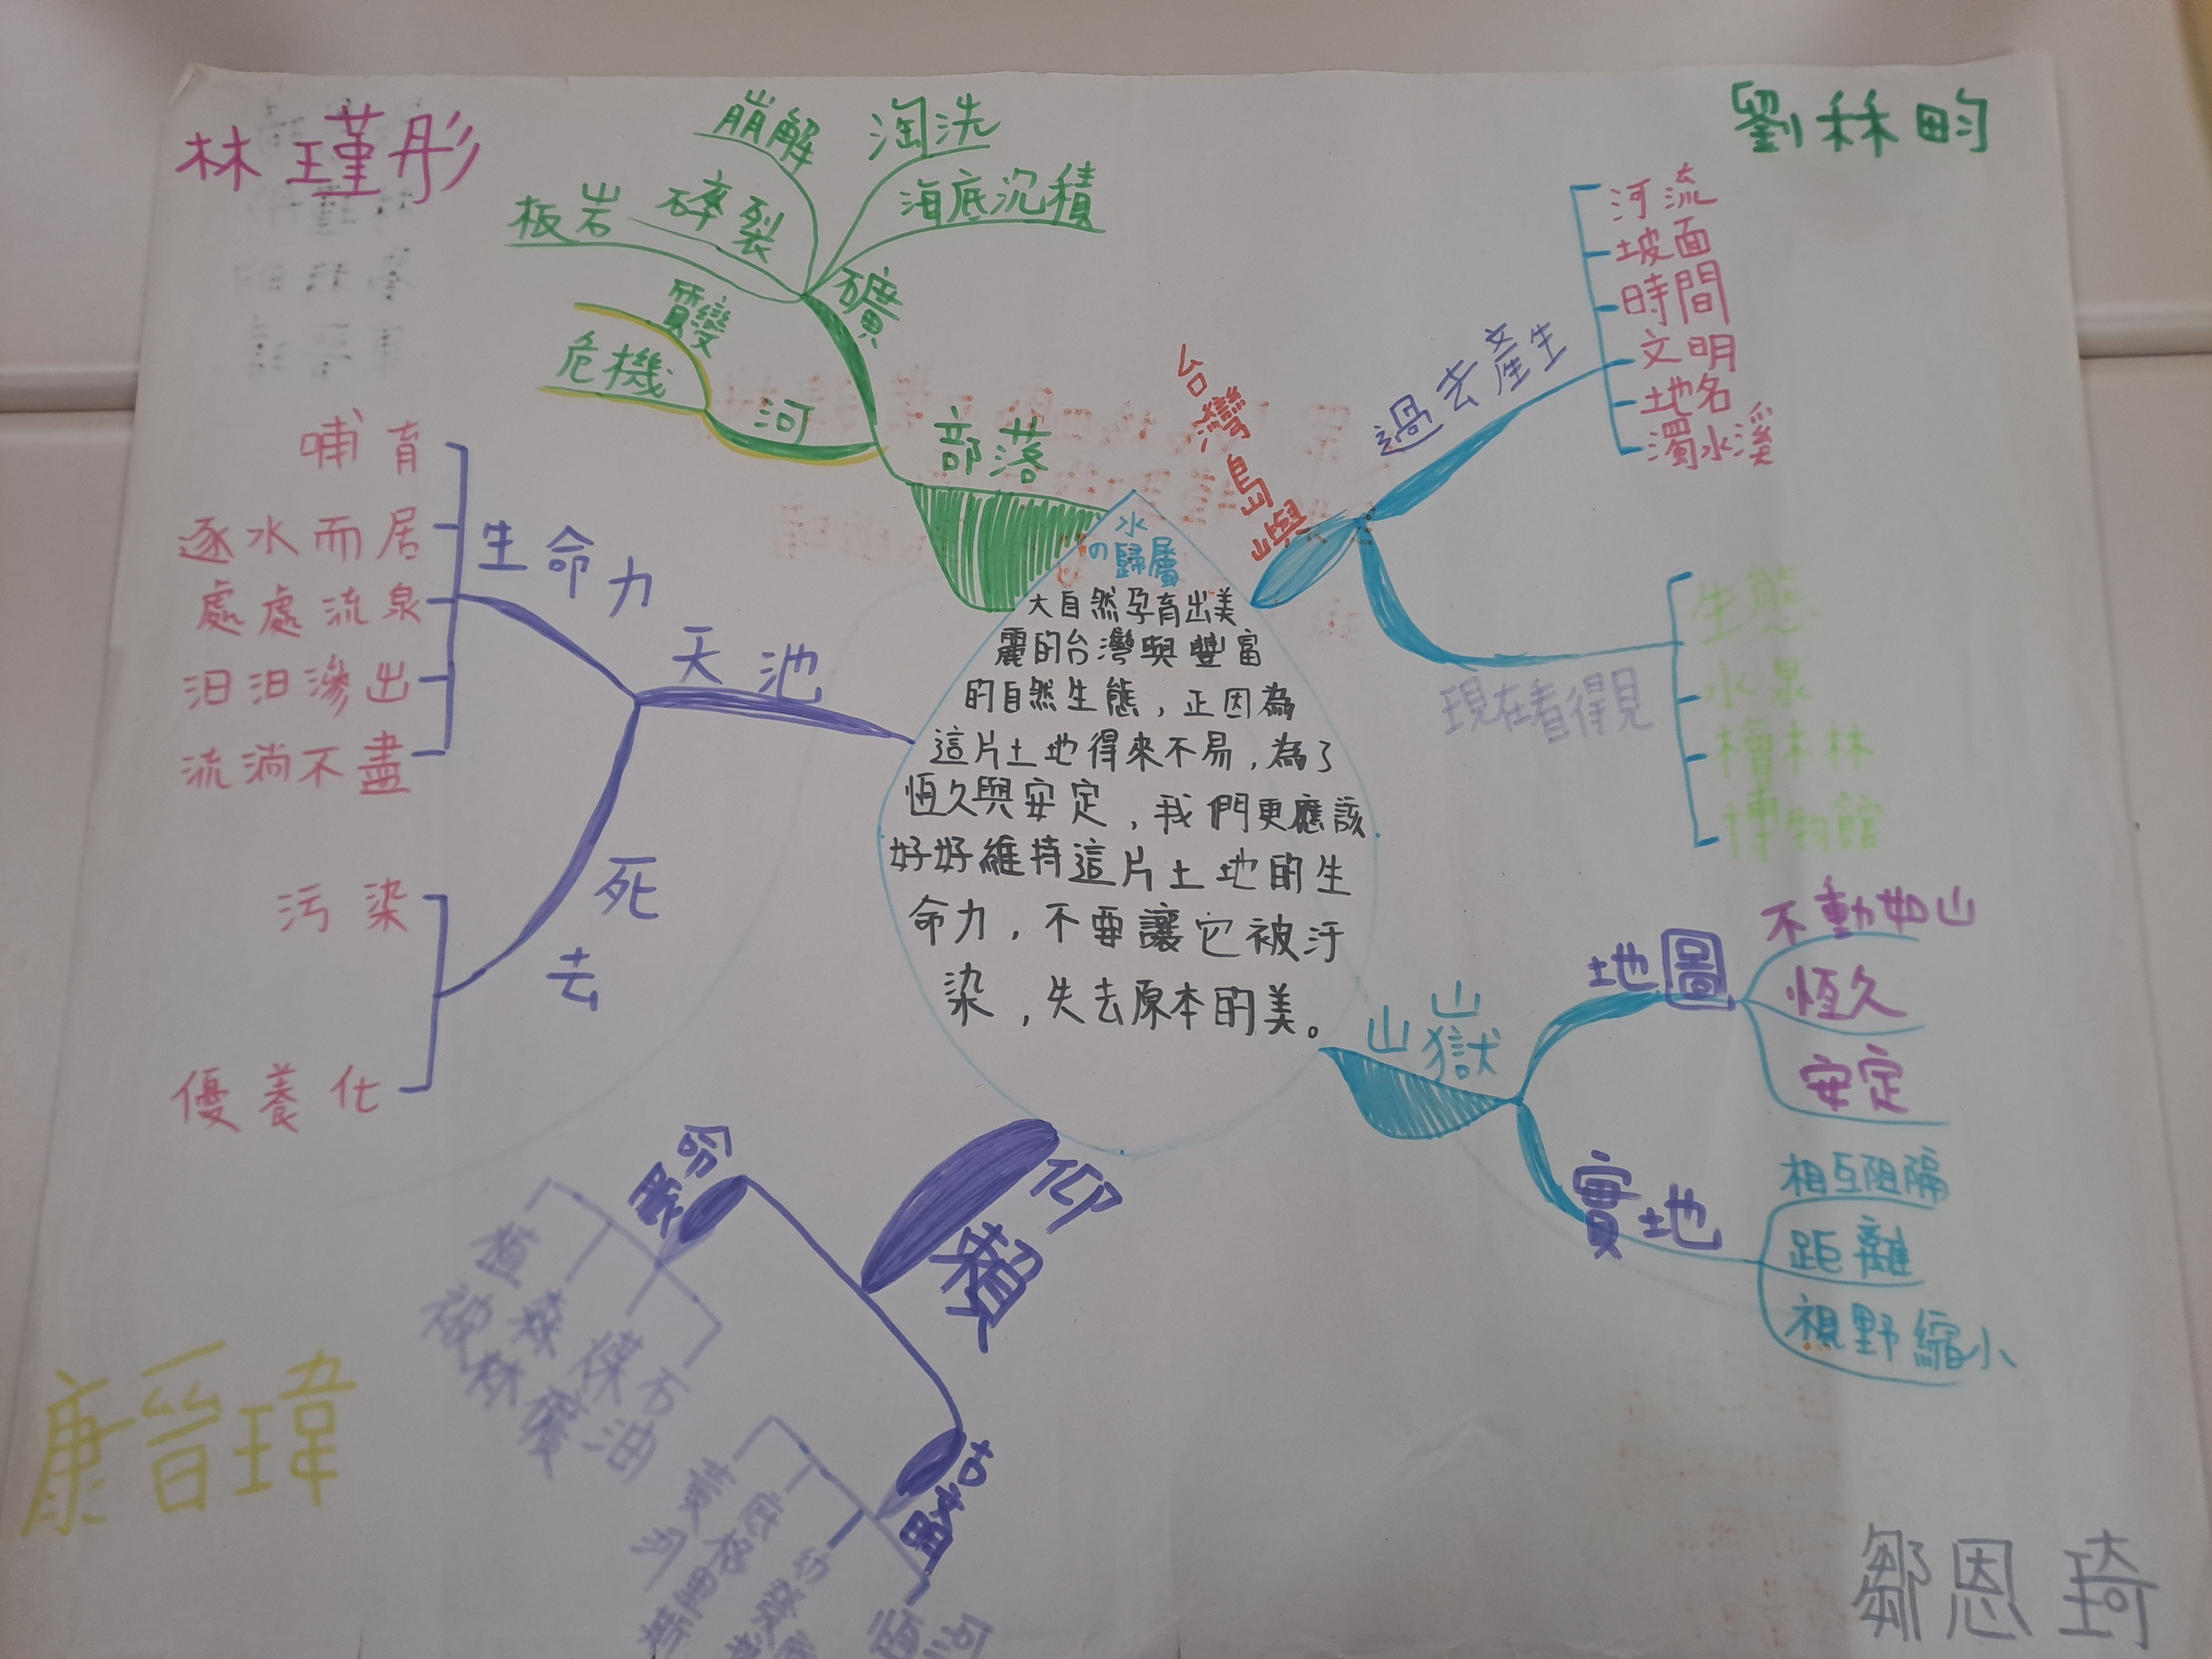 林瑾彤
劉秝畇
崩解
淘洗
板岩
碎裂
海底沉積
礦
質變
危機
河
部落
台灣島嶼
過去產生
河流
坡面
時間
文明
地名
濁水溪
現在看得見
生態
水泉
檜木林
博物館
哺育
逐水而居
處處流泉
汨汨滲出
流淌不盡
生命力
天池
死去
污染
優養化
水
の歸屬
大自然孕育出美
麗的台灣與豐富
的自然生態，正因為
這片土地得來不易，為了
恆久與安定，我們更應該
好好維持這片土地的生
命力，不要讓它被汙
染，失去原本的美。
山獄
地圖
不動如山
恆久
安定
實地
相互阻隔
距離
視野縮小
仰賴
植被
森林
煤礦
石油
古文明
黃河
底格里斯
恆河
康晉瑋
鄒恩琦